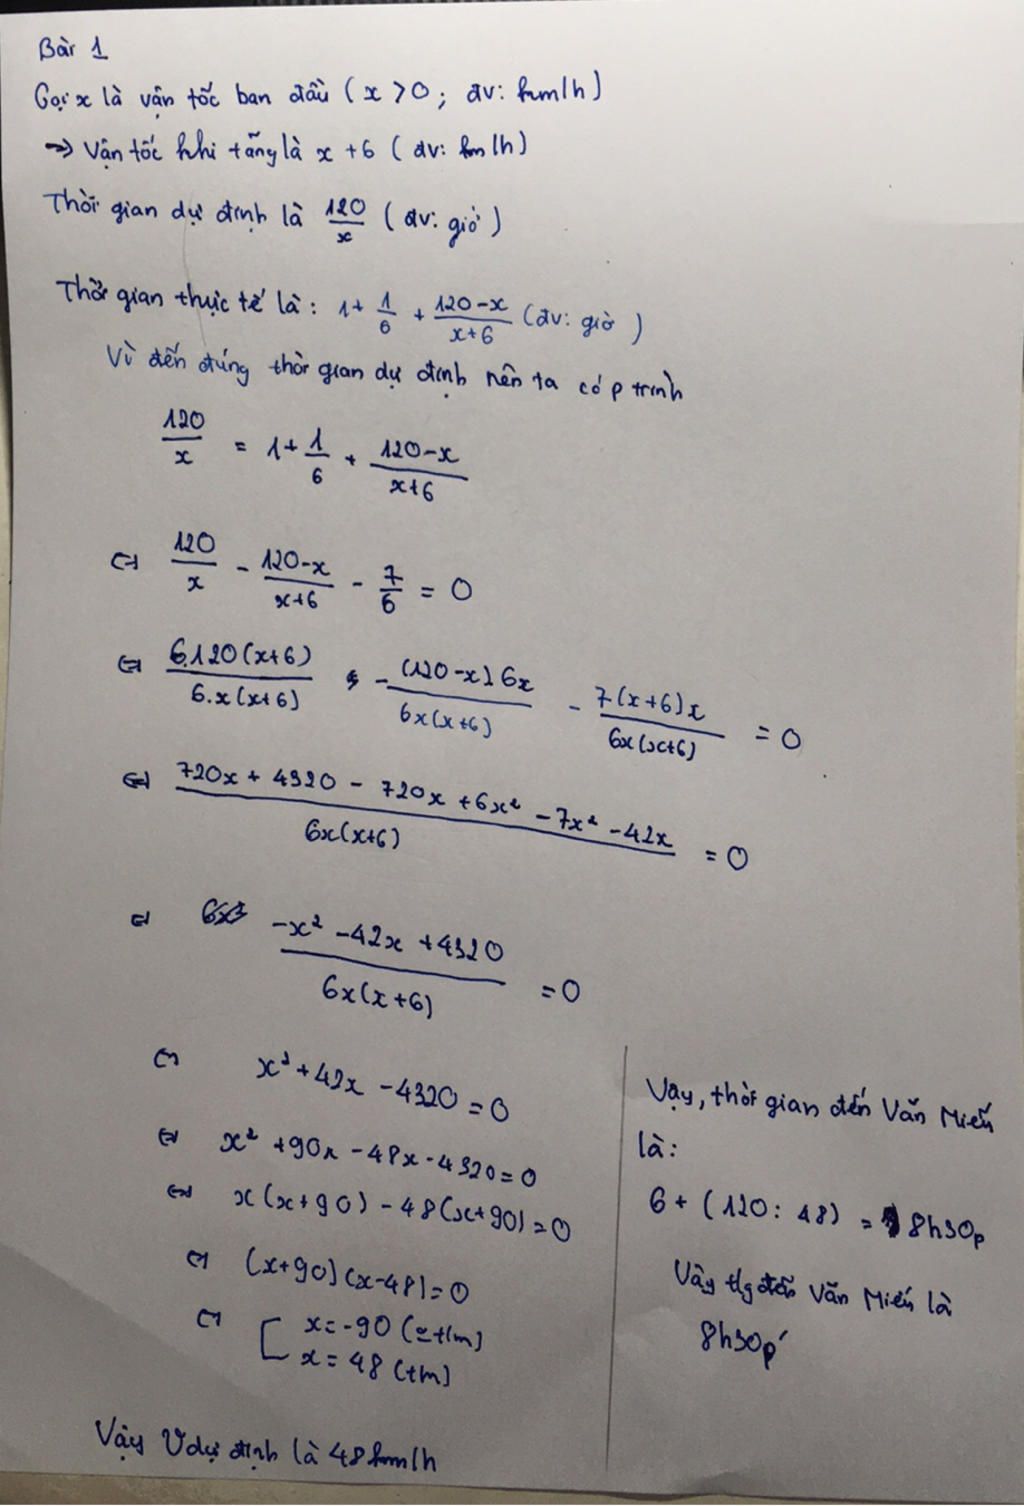 Bài 1
Gọi x là vận tốc ban đầu (x > 0; đv: km/h)
=> Vận tốc khi tăng là x + 6 (đv: km/h)
Thời gian dự định là 120/x (đv: giờ)
Thời gian thực tế là: 1 + 1/6 + (120-x)/(x+6) (đv: giờ)
Vì đến đúng thời gian dự định nên ta có p trình
120/x = 1 + 1/6 + (120-x)/(x+6)
⇔ 120/x - (120-x)/(x+6) - 7/6 = 0
⇔ 6.120(x+6)/6.x(x+6) - (120-x)6x/6x(x+6) - 7(x+6)x/6x(x+6) = 0
⇔ (720x + 4320 - 720x + 6x² - 7x² - 42x)/6x(x+6) = 0
⇔ (-x² - 42x + 4320)/6x(x+6) = 0
⇔ x² + 42x - 4320 = 0
⇔ x² + 90x - 48x - 4320 = 0
⇔ x(x+90) - 48(x+90) = 0
⇔ (x+90)(x-48) = 0
⇔ [ x = -90 (k
x = 48 (tm)
Vậy Vdự định là 48km/h
Vậy, thời gian đến Văn Miếu
là:
6 + (120 : 48) = 8h30p
Vậy tg đến Văn Miếu là
8h30p'